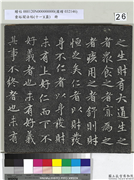 26
之生財有大道生之
者眾食之者寡為之
者疾用之者舒則財
恒足矣仁者以財發
身不仁者以身發財
未有上好仁而下不
好義者也未有好義
其事不終者也未有